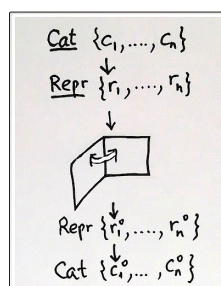 Cat {c₁,...., cₙ}
Repr {r₁,...., rₙ}
Repr {r₁°,...., rₙ°}
Cat {c₁°,..., cₙ°}